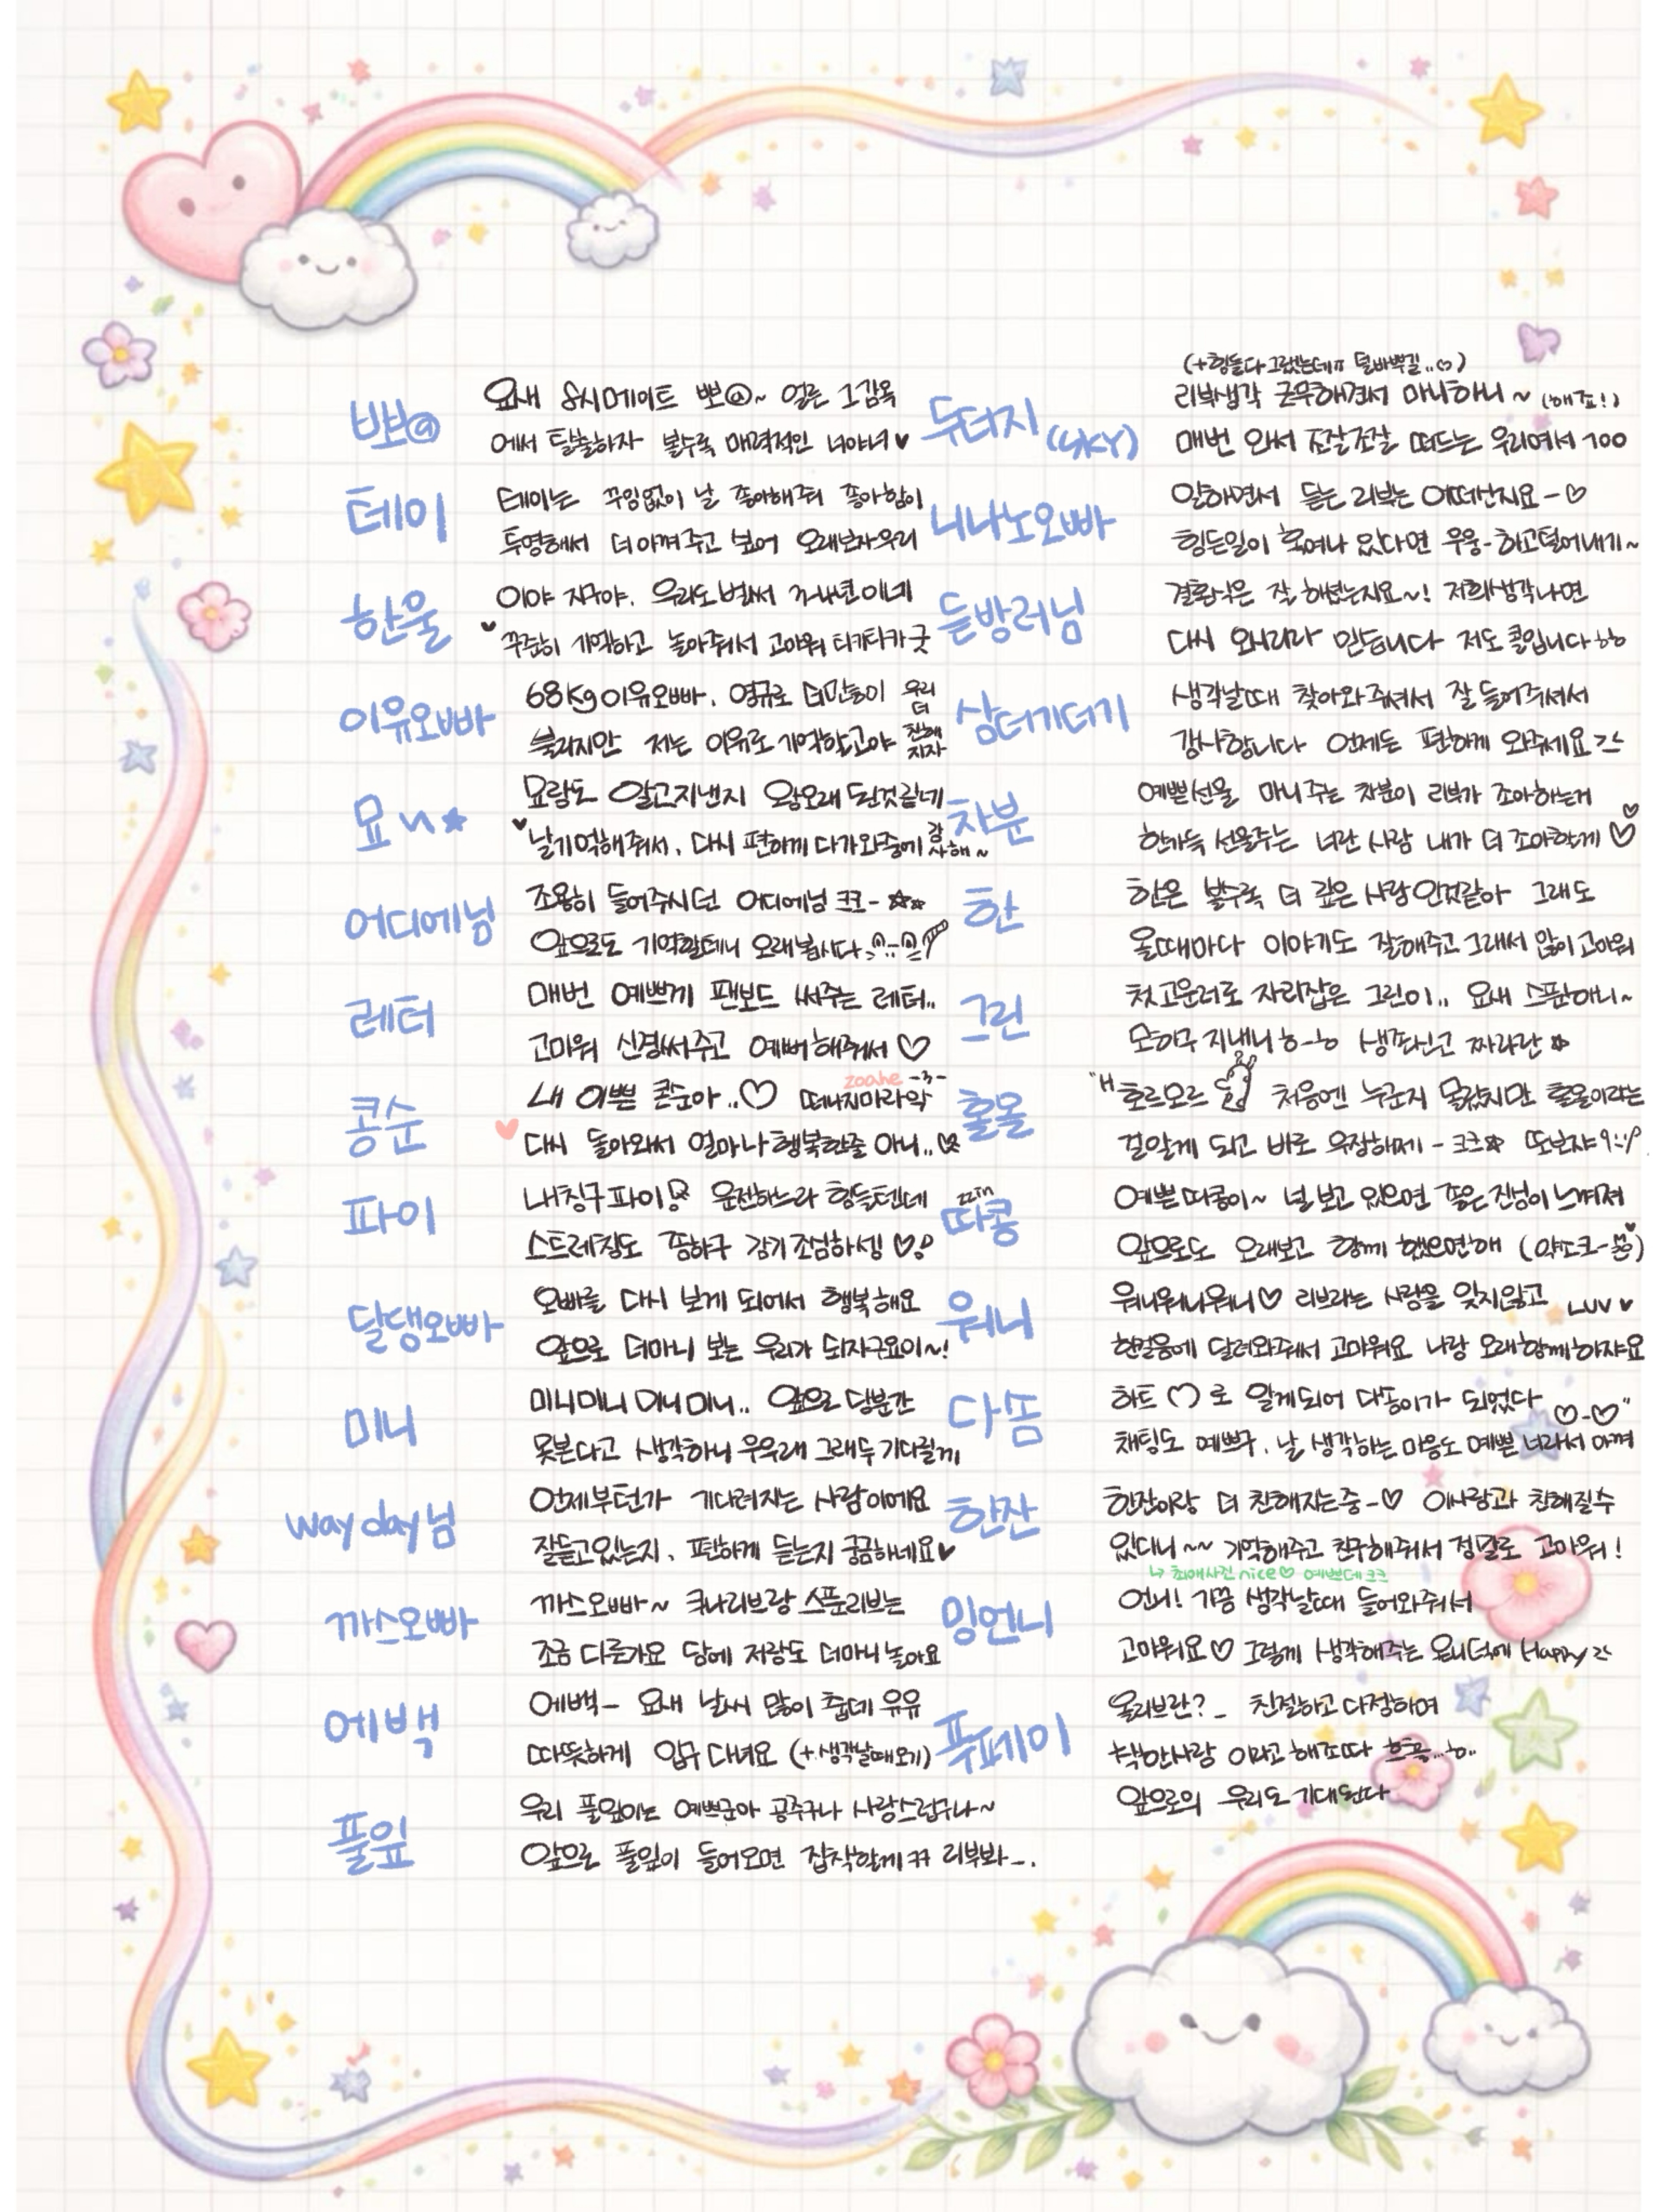 뽀@
요새 8시메이트 뽀@~ 얼른 그감옥
에서 탈출하자 볼수록 매력적인 너야너♥
테이
테이는 꾸밈없이 날 좋아해줘 좋아함이
투명해서 더 아껴주고 싶어 오래보자우리
한울
이야 지구야. 우리도벌써 3~4년이네
꾸준히 기억하고 놀아줘서 고마워 티키타카굿
이유오빠
68kg이유오빠. 영규로 더많이
불리지만 저는 이유로 기억할고야
우리
더
친해
지자
묘~★
묘랑도 알고지낸지 왕오래 된것같네
날기억해줘서, 다시 편하게 다가와줌에 감사해~
어디에님
조용히 들어주시던 어디에님 크크-☆☆
앞으로도 기억할테니 오래봅시다
레터
매번 예쁘게 팬보드 써주는 레터..
고마워 신경써주고 예뻐해줘서♡
콩순
내 이쁜 콘순아..♡ 떠나지마라악
zoahe -3-
다시 돌아와서 얼마나행복한줄 아니..
파이
내칭구파이 운전하느라 힘들텐데
스트레칭도 좀하구 감기조심하셍♡
달댕오빠
오빠를 다시 보게 되어서 행복해요
앞으로 더마니 보는 우리가 되자구요이~!
미니
미니미니 미니미니.. 앞으로 당분간
못본다고 생각하니 우우래 그래두기다릴께
way day님
언제부턴가 기다려지는 사람이에요
잘듣고있는지, 편하게 듣는지 궁금하네요♥
까스오빠
까스오빠~ 쿠나리브랑 스푼리브는
조금 다른가요 담에 저랑도 더마니놀아요
에백
에백- 요새 날씨 많이 춥데 유유
따뜻하게 입구다녀요 (+생각날때오기)
풀잎
우리 풀잎이는 예쁘군아 공주구나 사랑스럽구나~
앞으로 풀잎이 들어오면 집착할게ㅋㅋ 리부봐-.
두더지 (SKY)
(+힘들다그랬는데ㅠ 덜바쁘길..♡)
리부생각 근무하면서 마니하니~ (해죠!)
매번 와서 조잘조잘 떠드는 우리여서 100
니나노오빠
일하면서 듣는 리부는 어떠신지요-♡
힘든일이 혹여나 있다면 우웅-하고털어내기~
듣방러님
결혼식은 잘 하셨는지요~! 저희생각나면
다시 오시리라 믿습니다 저도콜입니다ㅎㅎ
삼더기더기
생각날때 찾아와주셔서 잘 들어주셔서
감사합니다 언제든 편하게 와주세요
차분
예쁜선물 마니주는 차분이 리부가 조아하는거
한가득 선물주는 너란 사람 내가 더 조아할게♡
한
한은 볼수록 더 깊은 사람인것같아 그래도
올때마다 이야기도 잘해주고그래서 많이고마워
그린
첫고운러로 자리잡은 그린이.. 요새 스푼아니~
모하구지내니 ㅎ-ㅎ 생존신고 짜라란☆
홀몰
"H 호르모르 처음엔 누군지 몰랐지만 홀몰이라는
걸알게 되고 바로 우장해제 - 크크☆ 또보쟈
따콩
zzin
예쁜따콩이~ 널보고 있으면 좋은진심이느껴져
앞으로도 오래보고 함께 했으면해 (약소크-)
워니
워니워니워니♡ 리브라는 사람을 잊지않고 LUV♥
한걸음에 달려와줘서 고마워요 나랑 오래함께하쟈요
다솜
하트♡로 알게되어 다솜이가 되었다 ♡-♡"
채팅도 예쁘구, 날 생각하는 마음도 예쁜 너라서 아껴
한잔
한잔이랑 더 친해지는중-♡ 이사람과 친해질수
있다니~~ 기억해주고 친구해줘서 정말로 고마워!
↳최애사진nice♡ 예쁘데크크
밍언니
언니! 가끔 생각날때 들어와줘서
고마워요♡ 그렇게 생각해주는 온니덕에 Happy
풋페이
올리브란?_ 친절하고다정하며
착한사람 이라고해쪼따 흐흥..ㅎ..
앞으로의 우리도 기대된다